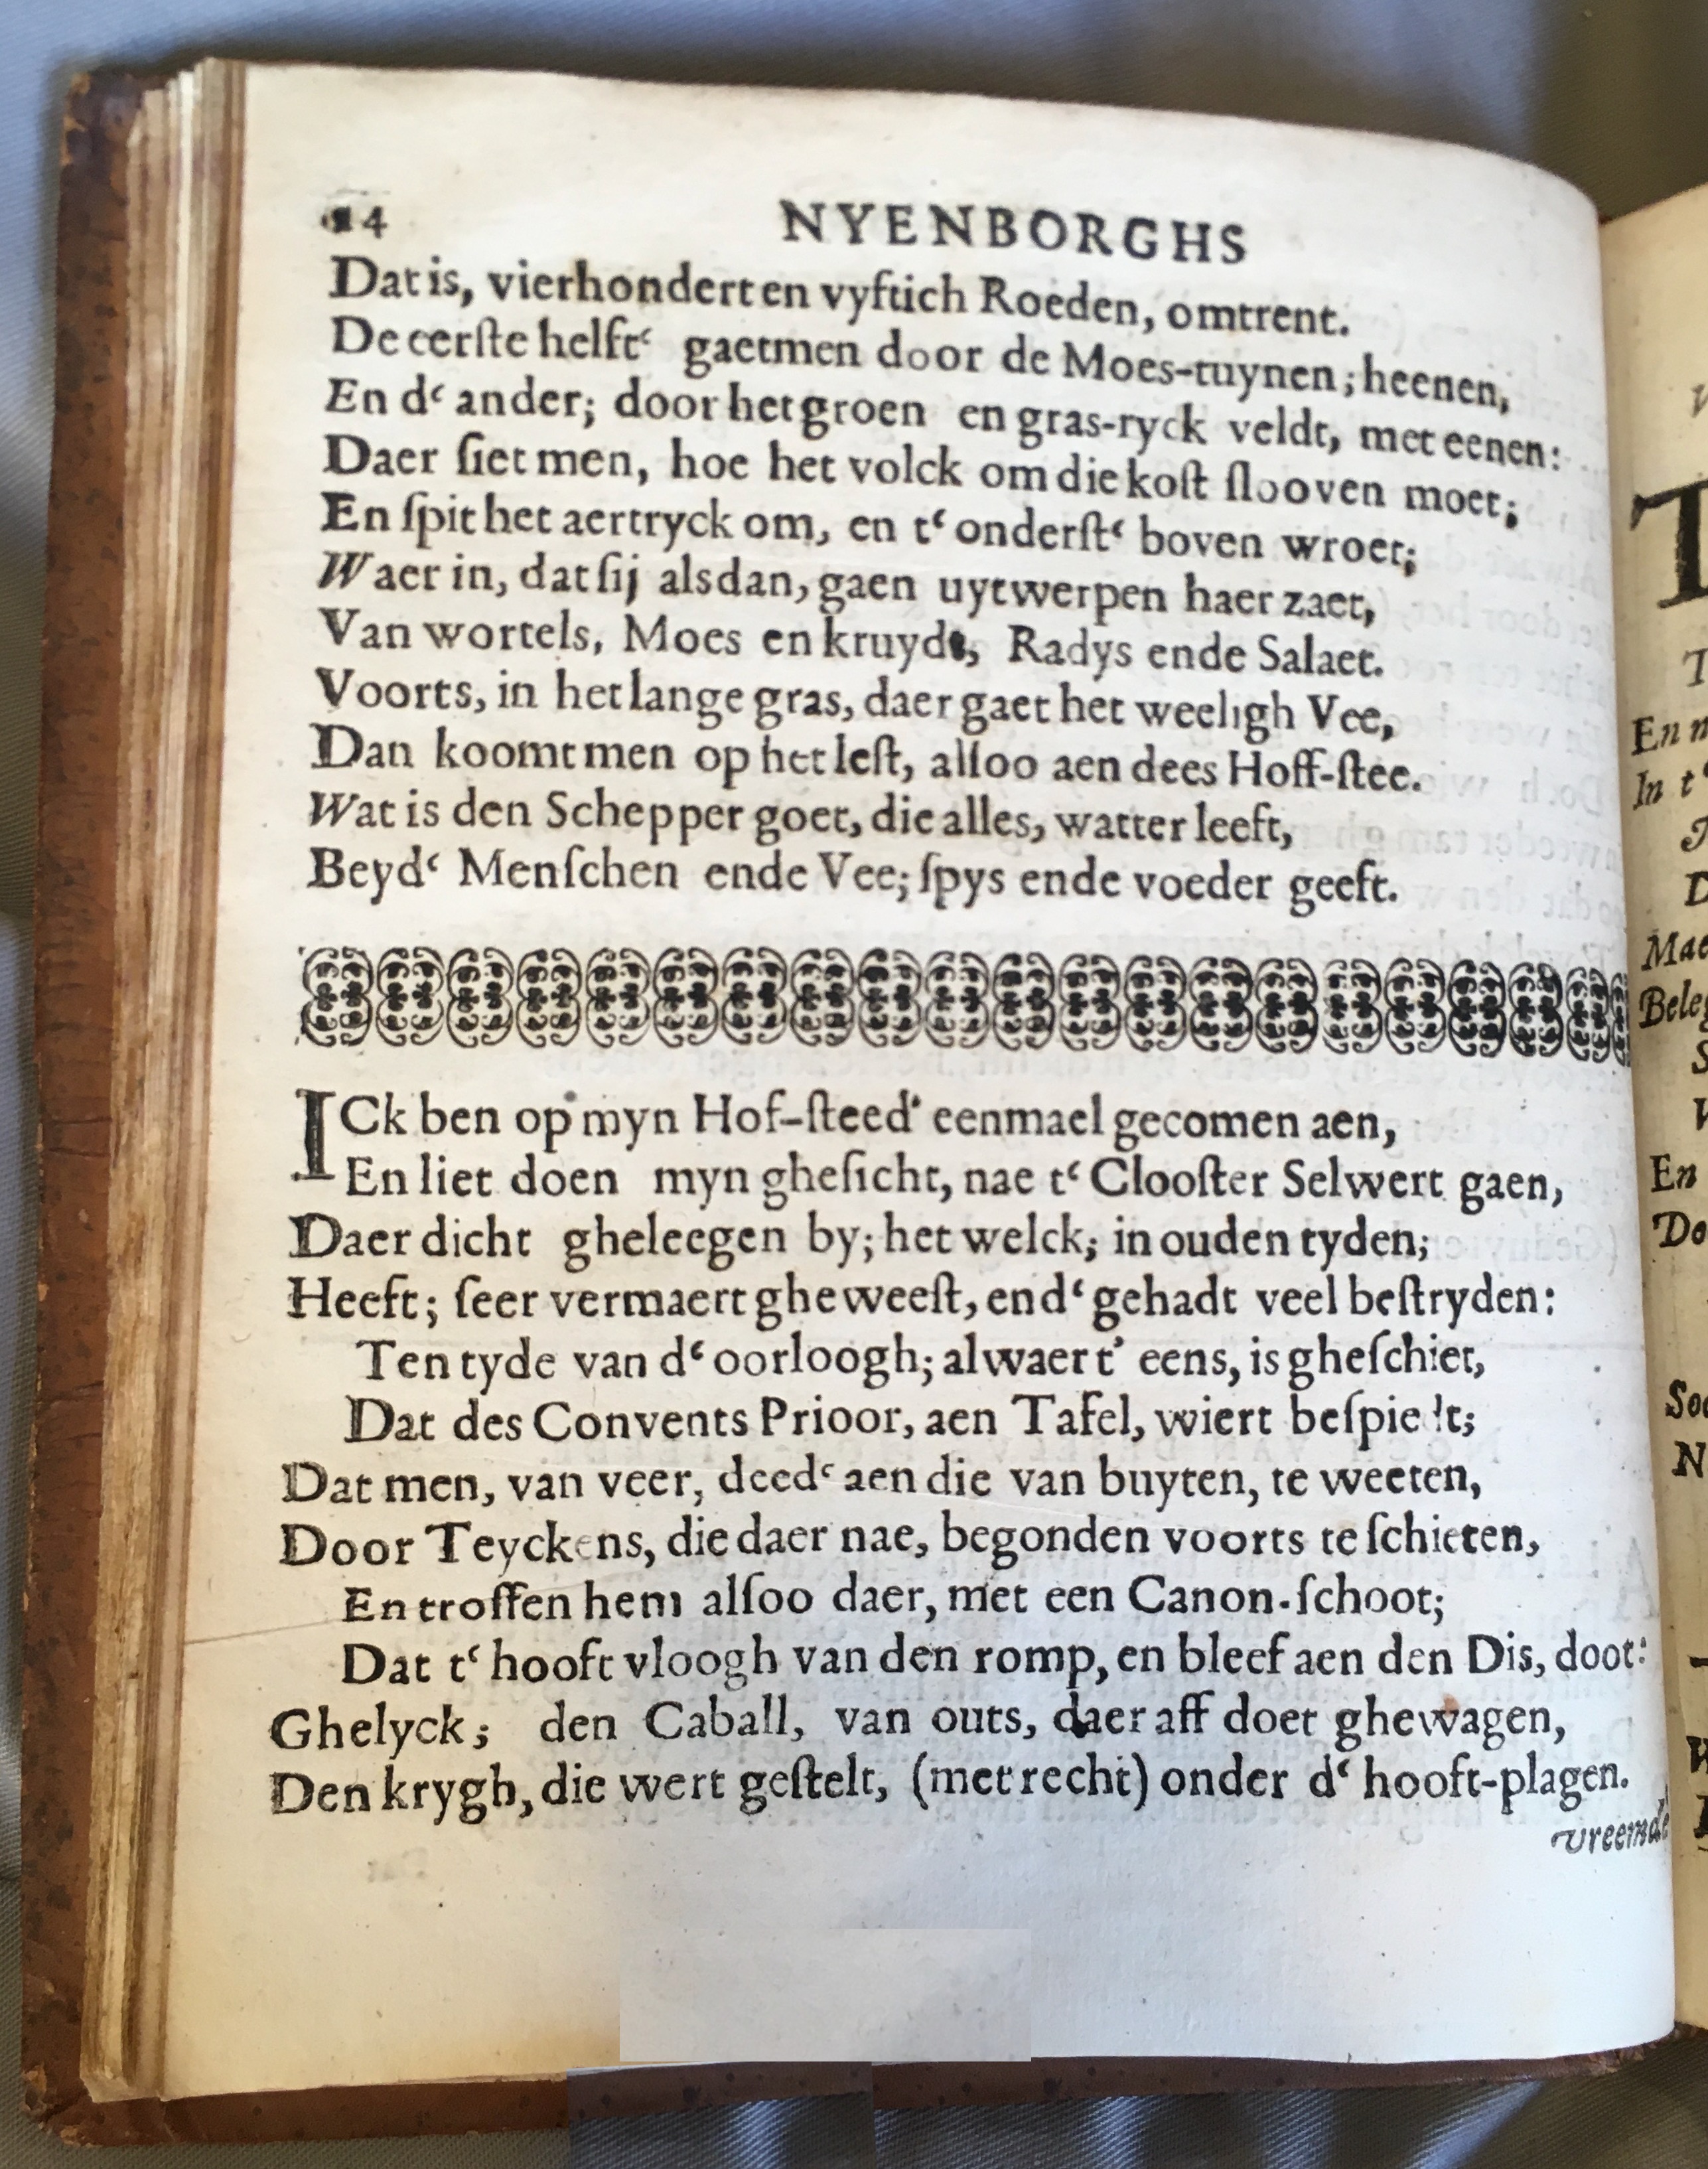 NYENBORGHS
Dat is, vierhondert en vyftich Roeden, omtrent.
De eerſte helft‘ gaetmen door de Moes-tuynen; heenen,
En d‘ ander; door het groen en gras-ryck veldt, met eenen:
Daer ſiet men, hoe het volck om die koſt ſlooven moet;
En ſpit het aertryck om, en t‘ onderſt‘ boven wroet;
Waer in, dat ſij alsdan, gaen uytwerpen haer zaet,
Van wortels, Moes en kruyde, Radys ende Salaet.
Voorts, in het lange gras, daer gaet het weeligh Vee,
Dan koomt men op het leſt, alſoo aen dees Hoff-ſtee.
Wat is den Schepper goet, die alles, watter leeft,
Beyd‘ Menſchen ende Vee; ſpys ende voeder geeft.
ICk ben op myn Hof-ſteed' eenmael gecomen aen,
En liet doen myn gheſicht, nae t‘ Clooſter Selwert gaen,
Daer dicht gheleegen by; het welck; in ouden tyden;
Heeft; ſeer vermaert gheweeſt, end‘ gehadt veel beſtryden:
Ten tyde van d‘ oorloogh; alwaer t’ eens, is gheſchiet,
Dat des Convents Prioor, aen Tafel, wiert
Dat men, van veer, deed‘ aen die van buyten, te weeten,
Door Teyckens, die daer nae, begonden voorts te ſchieten,
En troffen hem alſoo daer, met een Canon-ſchoot;
Dat t‘ hooft vloogh van den romp, en bleef aen den Dis, doot:
Ghelyck; den Caball, van outs, daer aff doet ghewagen,
Den krygh, die wert geſtelt, (met recht) onder d‘ hooft-plagen.
vreemde
En
In t‘
Do